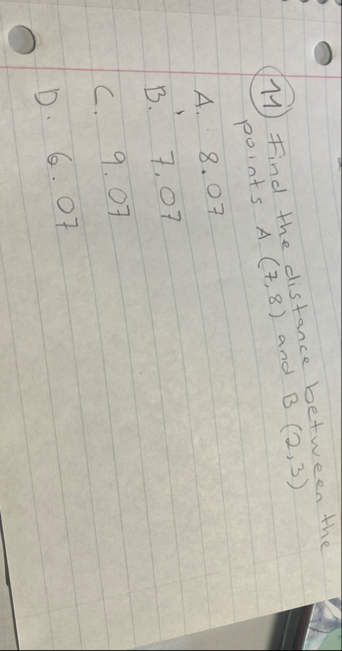 11) Find the distance between the
points A (7,8) and B (2,3)
A. 8.07
B. 7.07
C. 9.07
D. 6.07